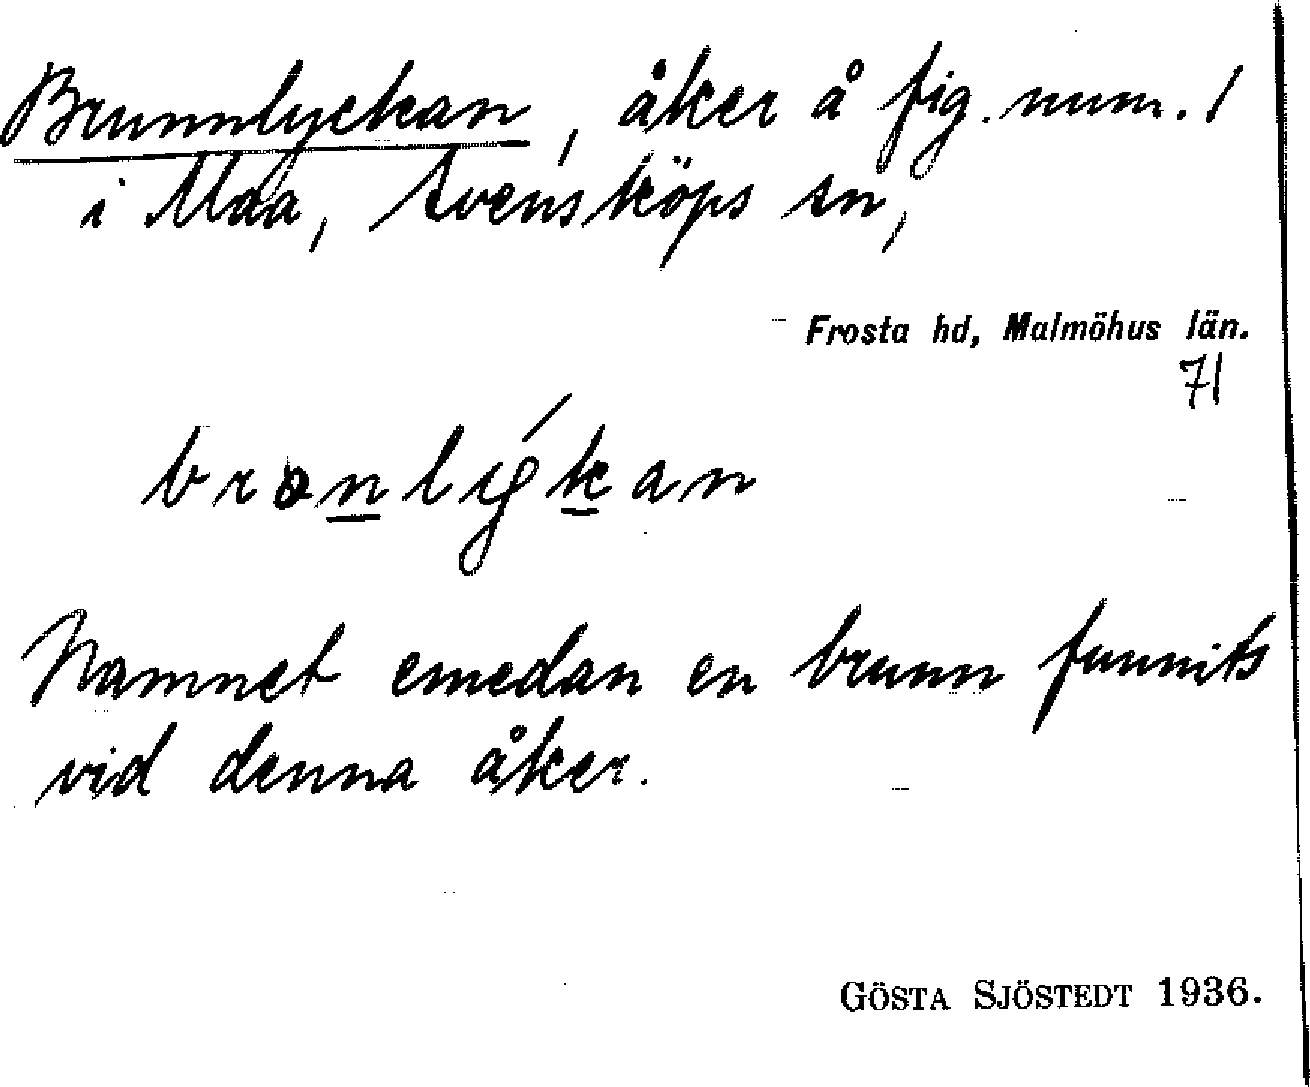 Brunnlyckan, åker å fig. num. 1
i Maa, Svensköps sn,
Frosta hd, Malmöhus län.
71
Namnet emedan en brunn funnits
vid denna åker.
GÖSTA SJÖSTEDT 1936.